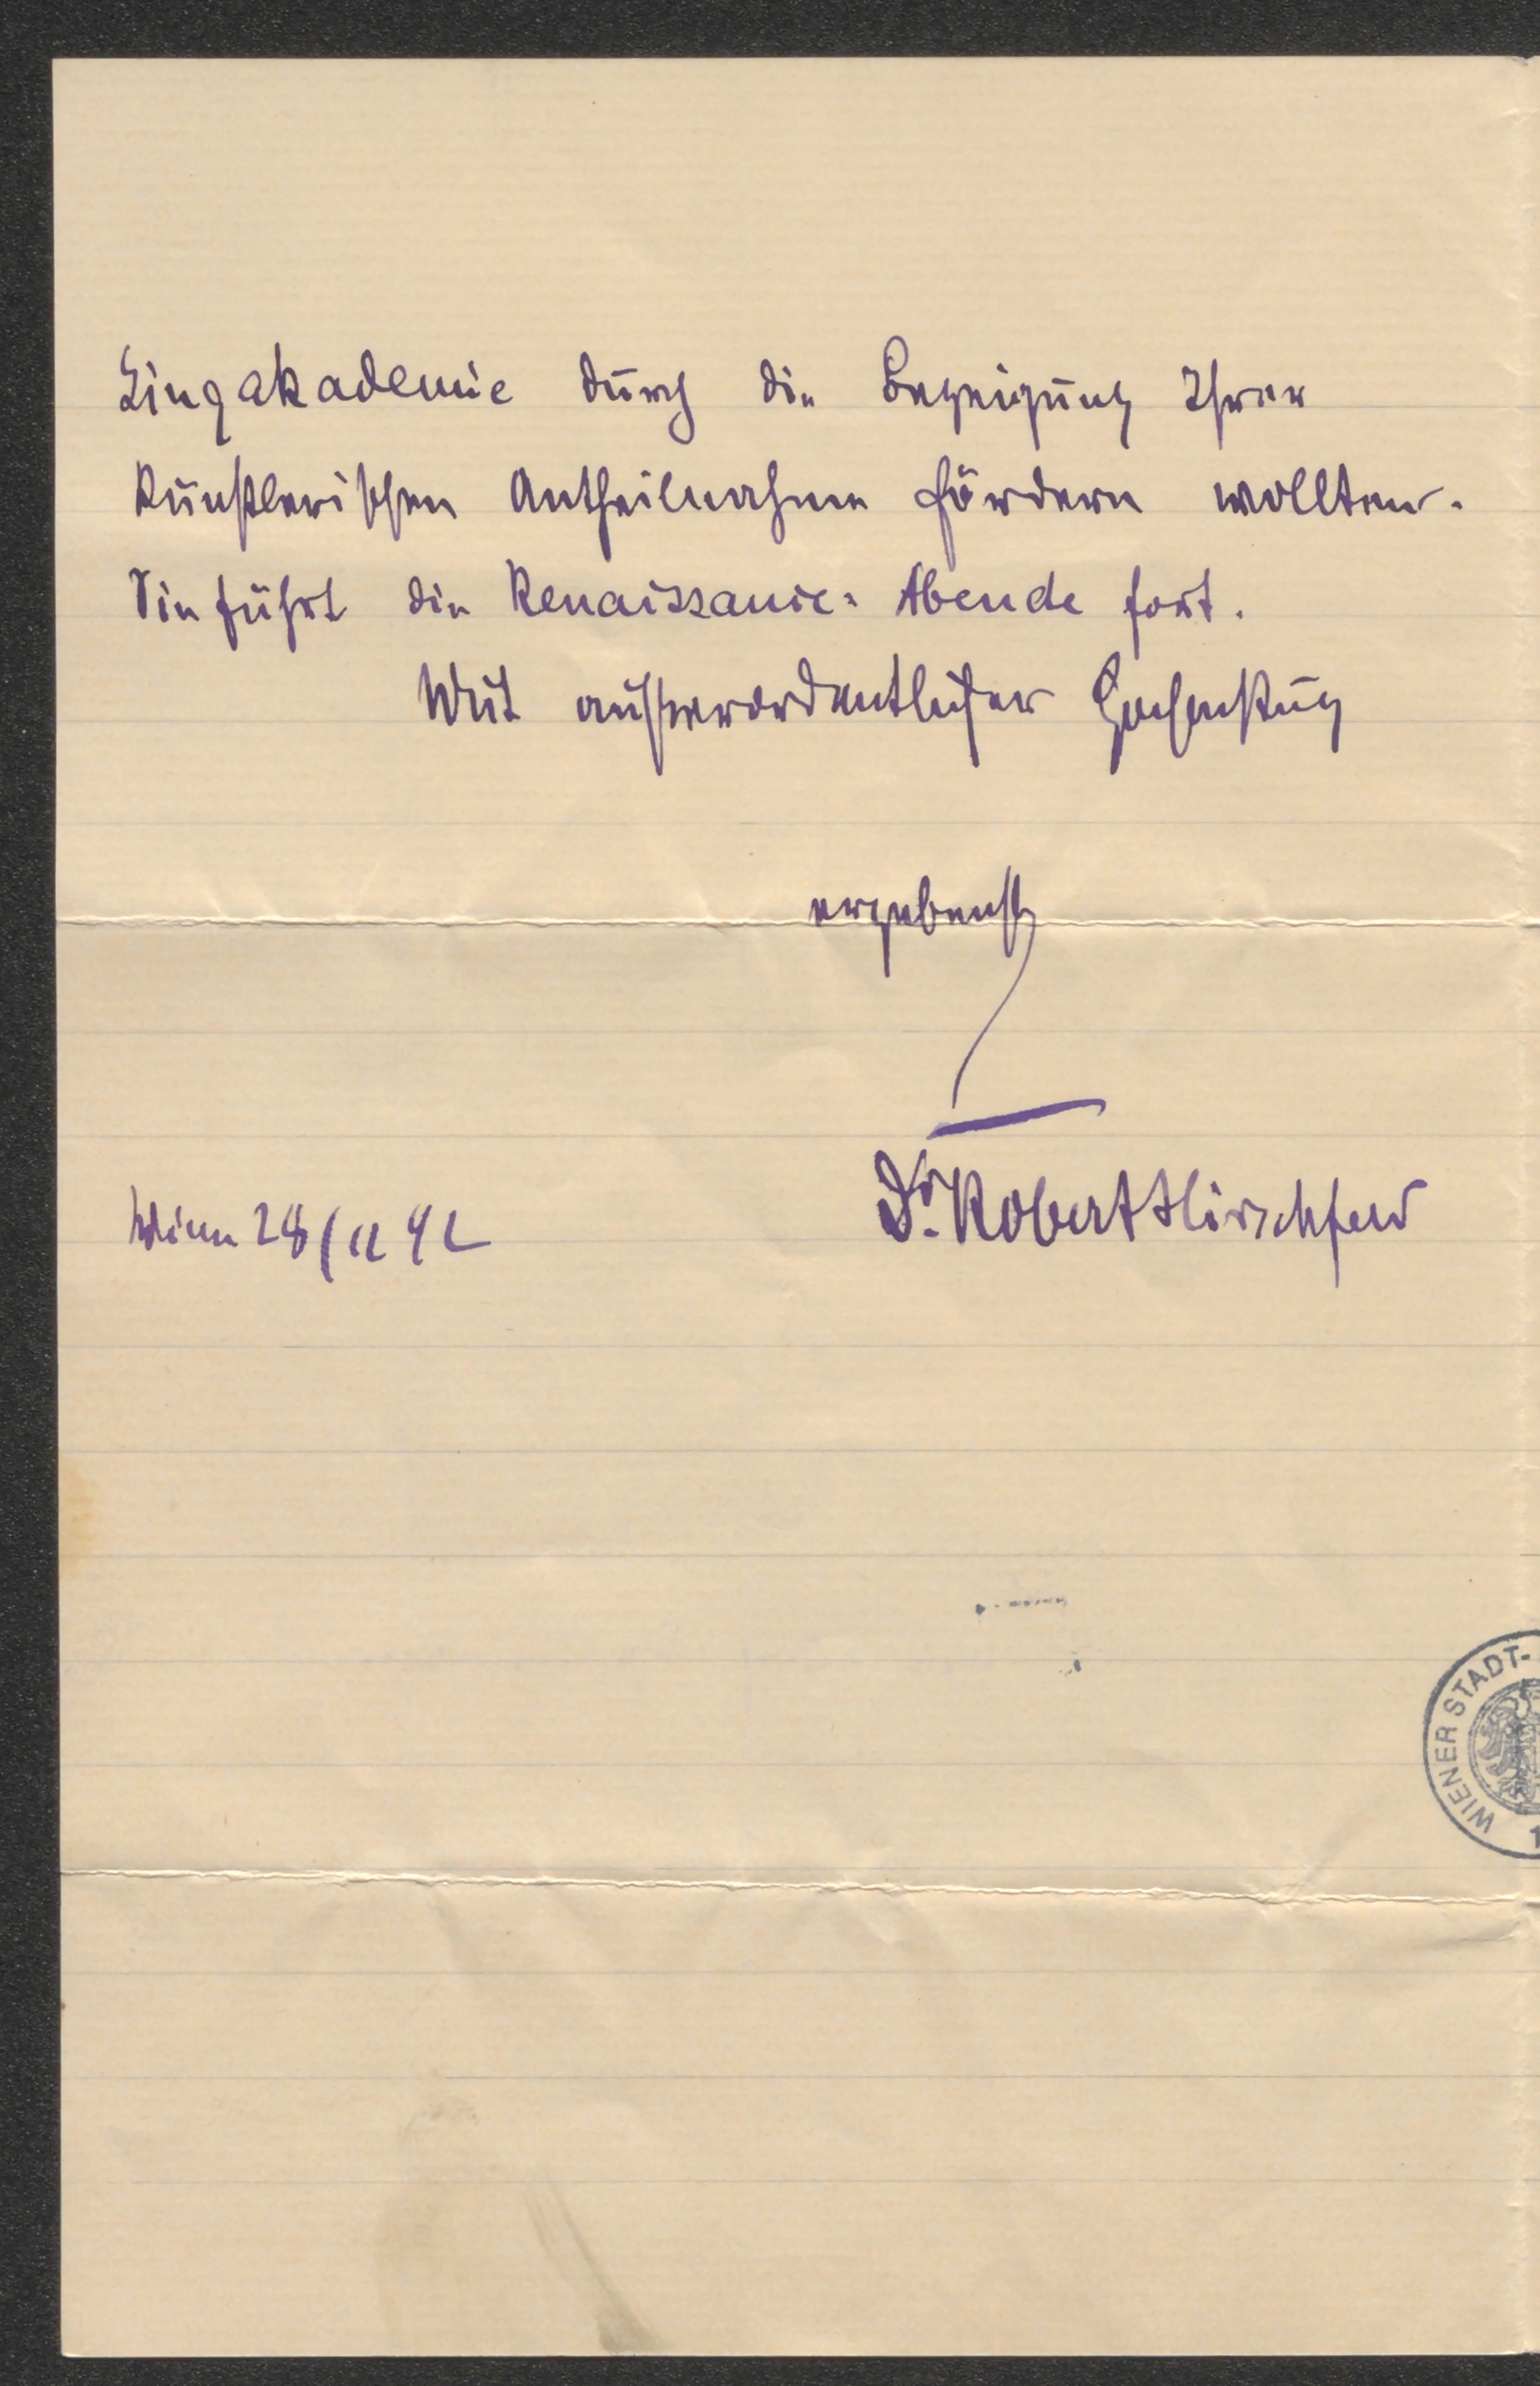 Singakademie durch die Bezeigung Ihrer
künstlerischen Antheilnahme fördern wollten.
Sie führt die Renaissance-Abende fort.
Mit ausserordentlicher Hochachtung
ergebenst
Dr. Robert Hirschfeld
Wien 28/11 92
WIENER STADT-